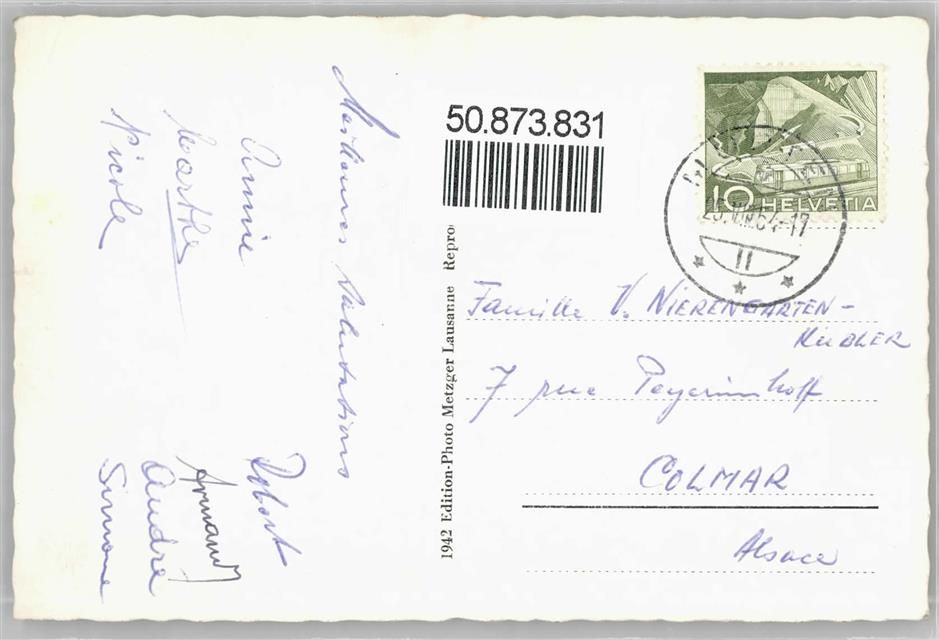 Meilleures Salutations
Annie
Marthe
Nicole
Robert
Armand
André
Simone
50.873.831
1942 Edition-Photo Metzger Lausanne Repro
10 HELVETIA
-17
II
Famille V. NIERENGARTEN-
KUBLER
7 rue Peyerimhoff
COLMAR
Alsace